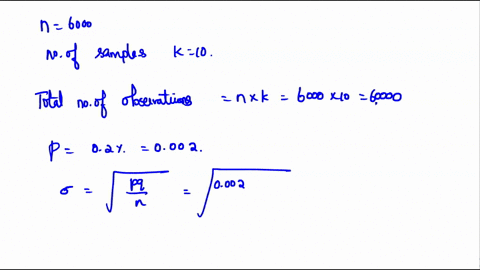 n = 6000
no. of samples k = 10.
Total no. of observations = n x k = 6000 x 10 = 60000
p = 0.2%. = 0.002.
σ = √(pq/n) = √(0.002